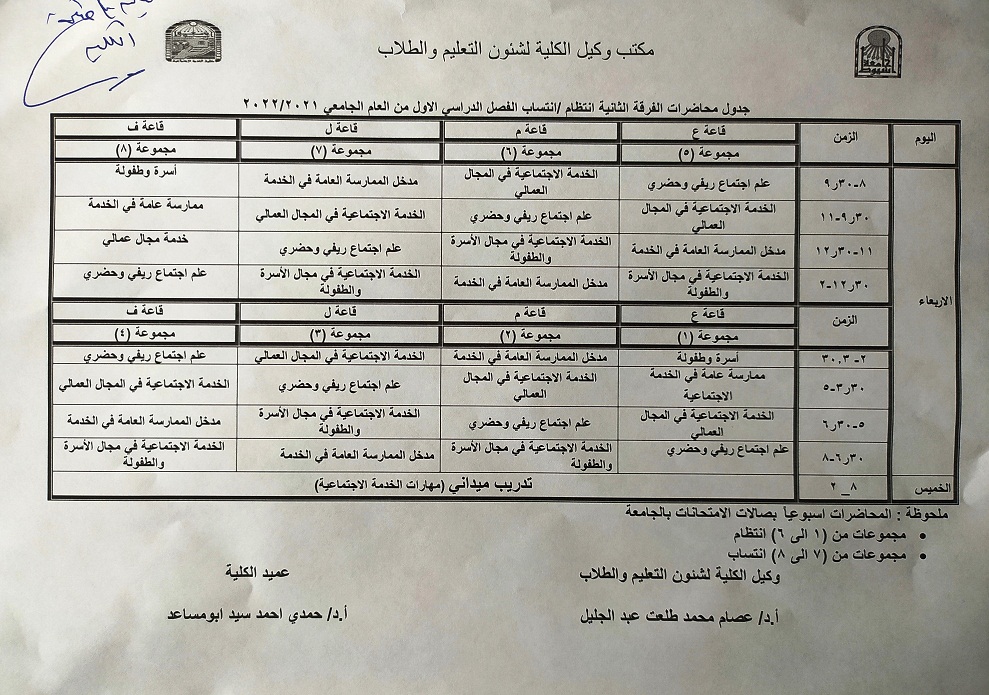 مكتب وكيل الكلية لشئون التعليم والطلاب
جدول محاضرات الفرقة الثانية انتظام /انتساب الفصل الدراسي الاول من العام الجامعي ٢٠٢٢/٢٠٢١
اليوم الزمن قاعة ع قاعة م قاعة ل قاعة ف
مجموعة (٥) مجموعة (٦) مجموعة (٧) مجموعة (٨)
الاربعاء
٨-٣٠ر٩ علم اجتماع ريفي وحضري الخدمة الاجتماعية في المجال العمالي مدخل الممارسة العامة في الخدمة أسرة وطفولة
٣٠ر٩-١١ الخدمة الاجتماعية في المجال العمالي علم اجتماع ريفي وحضري الخدمة الاجتماعية في المجال العمالي ممارسة عامة في الخدمة
١١-٣٠ر١٢ مدخل الممارسة العامة في الخدمة الخدمة الاجتماعية في مجال الأسرة والطفولة علم اجتماع ريفي وحضري خدمة مجال عمالي
٣٠ر١٢-٢ الخدمة الاجتماعية في مجال الأسرة والطفولة مدخل الممارسة العامة في الخدمة الخدمة الاجتماعية في مجال الأسرة والطفولة علم اجتماع ريفي وحضري
الزمن قاعة ع قاعة م قاعة ل قاعة ف
مجموعة (١) مجموعة (٢) مجموعة (٣) مجموعة (٤)
٢-٣٠.٣ أسرة وطفولة مدخل الممارسة العامة في الخدمة الخدمة الاجتماعية في المجال العمالي علم اجتماع ريفي وحضري
٣٠ر٣-٥ ممارسة عامة في الخدمة الاجتماعية الخدمة الاجتماعية في المجال العمالي علم اجتماع ريفي وحضري الخدمة الاجتماعية في المجال العمالي
٥-٣٠ر٦ الخدمة الاجتماعية في المجال العمالي علم اجتماع ريفي وحضري الخدمة الاجتماعية في مجال الأسرة والطفولة مدخل الممارسة العامة في الخدمة
٣٠ر٦-٨ علم اجتماع ريفي وحضري الخدمة الاجتماعية في مجال الأسرة والطفولة مدخل الممارسة العامة في الخدمة الخدمة الاجتماعية في مجال الأسرة والطفولة
الخميس ٨_ ٢ تدريب ميداني (مهارات الخدمة الاجتماعية)
ملحوظة : المحاضرات اسبوعياً بصالات الامتحانات بالجامعة
• مجموعات من (١ الى ٦) انتظام
• مجموعات من (٧ الى ٨) انتساب
وكيل الكلية لشئون التعليم والطلاب عميد الكلية
أ.د/ عصام محمد طلعت عبد الجليل أ.د/ حمدي احمد سيد ابومساعد